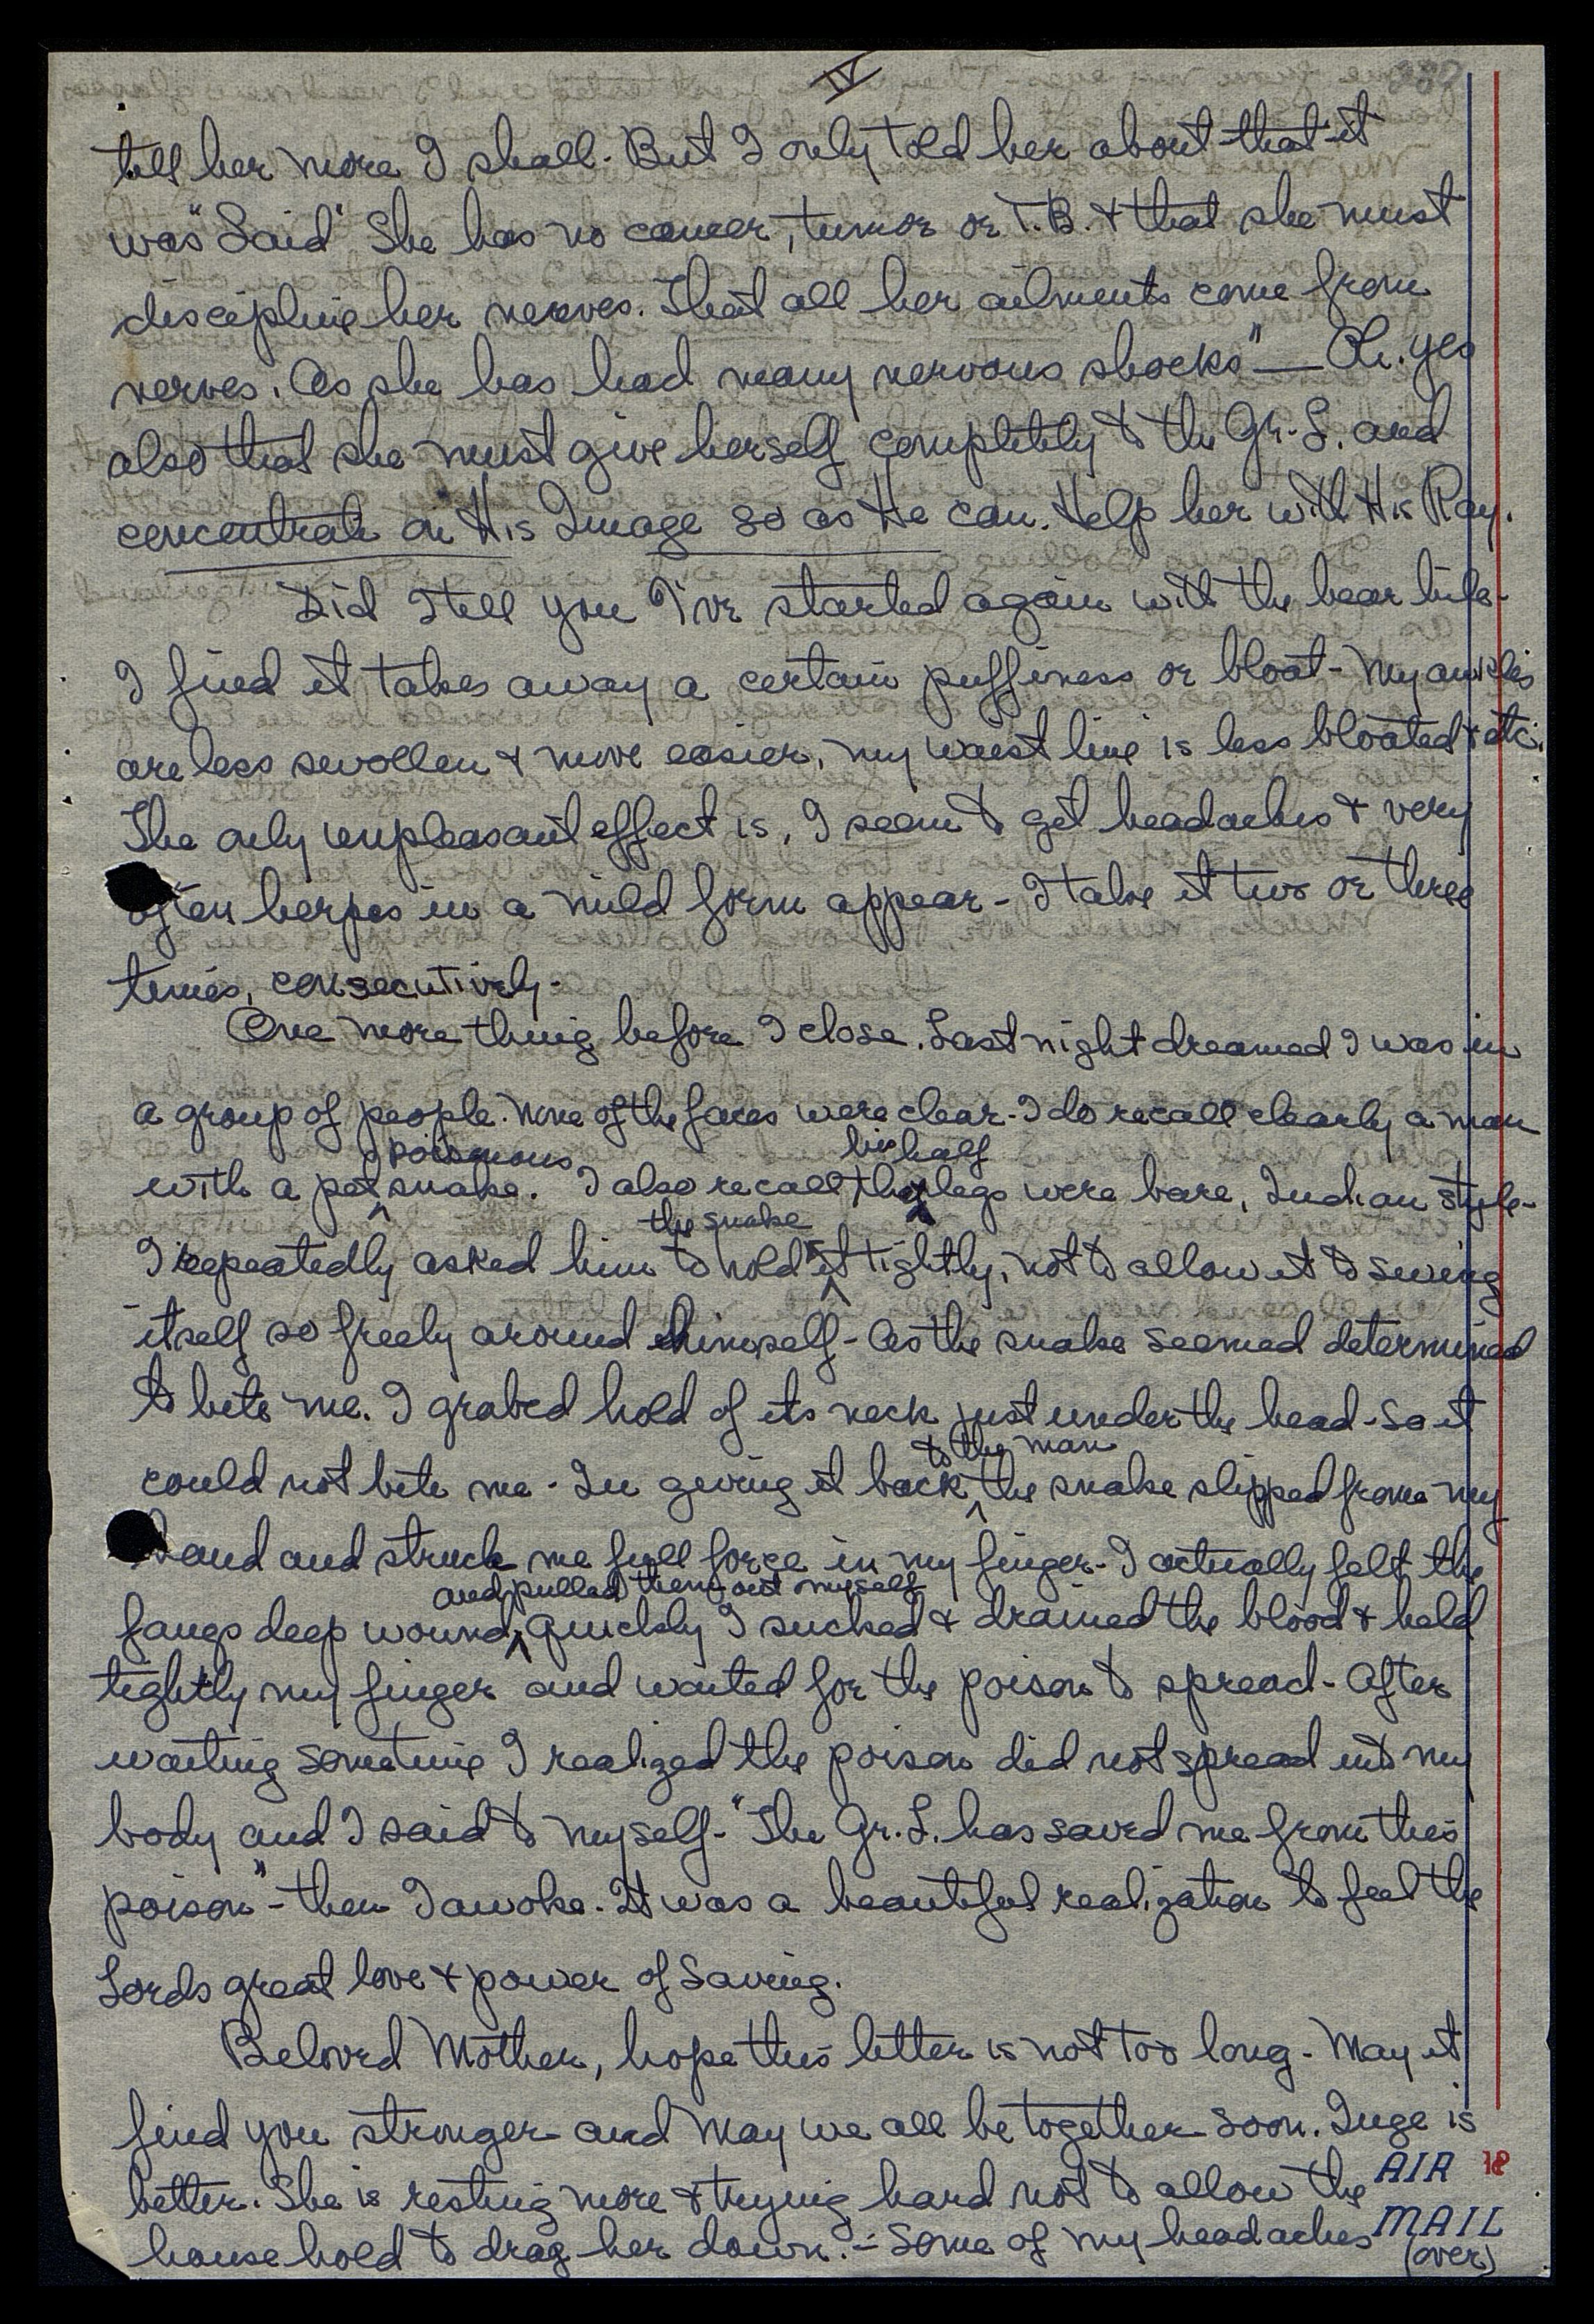 IV
tell her more I shall. But I only told her about that it
was "Said" She has no cancer, tumor or T.B. + that she must
discipline her nerves. That all her ailments come from
nerves. As she has had many nervous shocks" — Oh. yes
also that she must give herself completely to the Gr. L. and
concentrate on His Image so as He can. Help her with His Ray.
Did I tell you I've started again with the bear bile-
I find it takes away a certain puffiness or bloat- My ankles
are less swollen + move easier, my waist line is less bloated + etc.
The only unpleasant effect is, I seem to get headaches + very
often herpes in a mild form appear - I take it two or three
times, consecutively-
One more thing before I close. Last night dreamed I was in
a group of people. None of the faces were clear- I do recall clearly a man
poisonous his half
with a pet snake. I also recall legs were bare, Indian style-
the snake
I repeatedly asked him to hold it tightly, not to allow it to swing
itself so freely around himself- As the snake seemed determined
to bite me. I grabed hold of its neck just under the head- So it
to the man
could not bite me - In giving it back the snake slipped from my
hand and struck me full force in my finger- I actually felt the
and pulled them out myself
fangs deep wound, quickly I sucked + drained the blood + held
tightly my finger and waited for the poison to spread - After
waiting sometime I realized the poison did not spread into my
body and I said to myself- "The Gr. L. has saved me from this
poison" - then I awoke. It was a beautiful realization to feel the
Lords great love + power of Saving.
Beloved Mother, hope this letter is not too long - May it
find you stronger and May we all be together soon. Inge is
better. She is resting more + trying hard not to allow the
household to drag her down. - Some of my headaches
AIR 18
MAIL
(over)